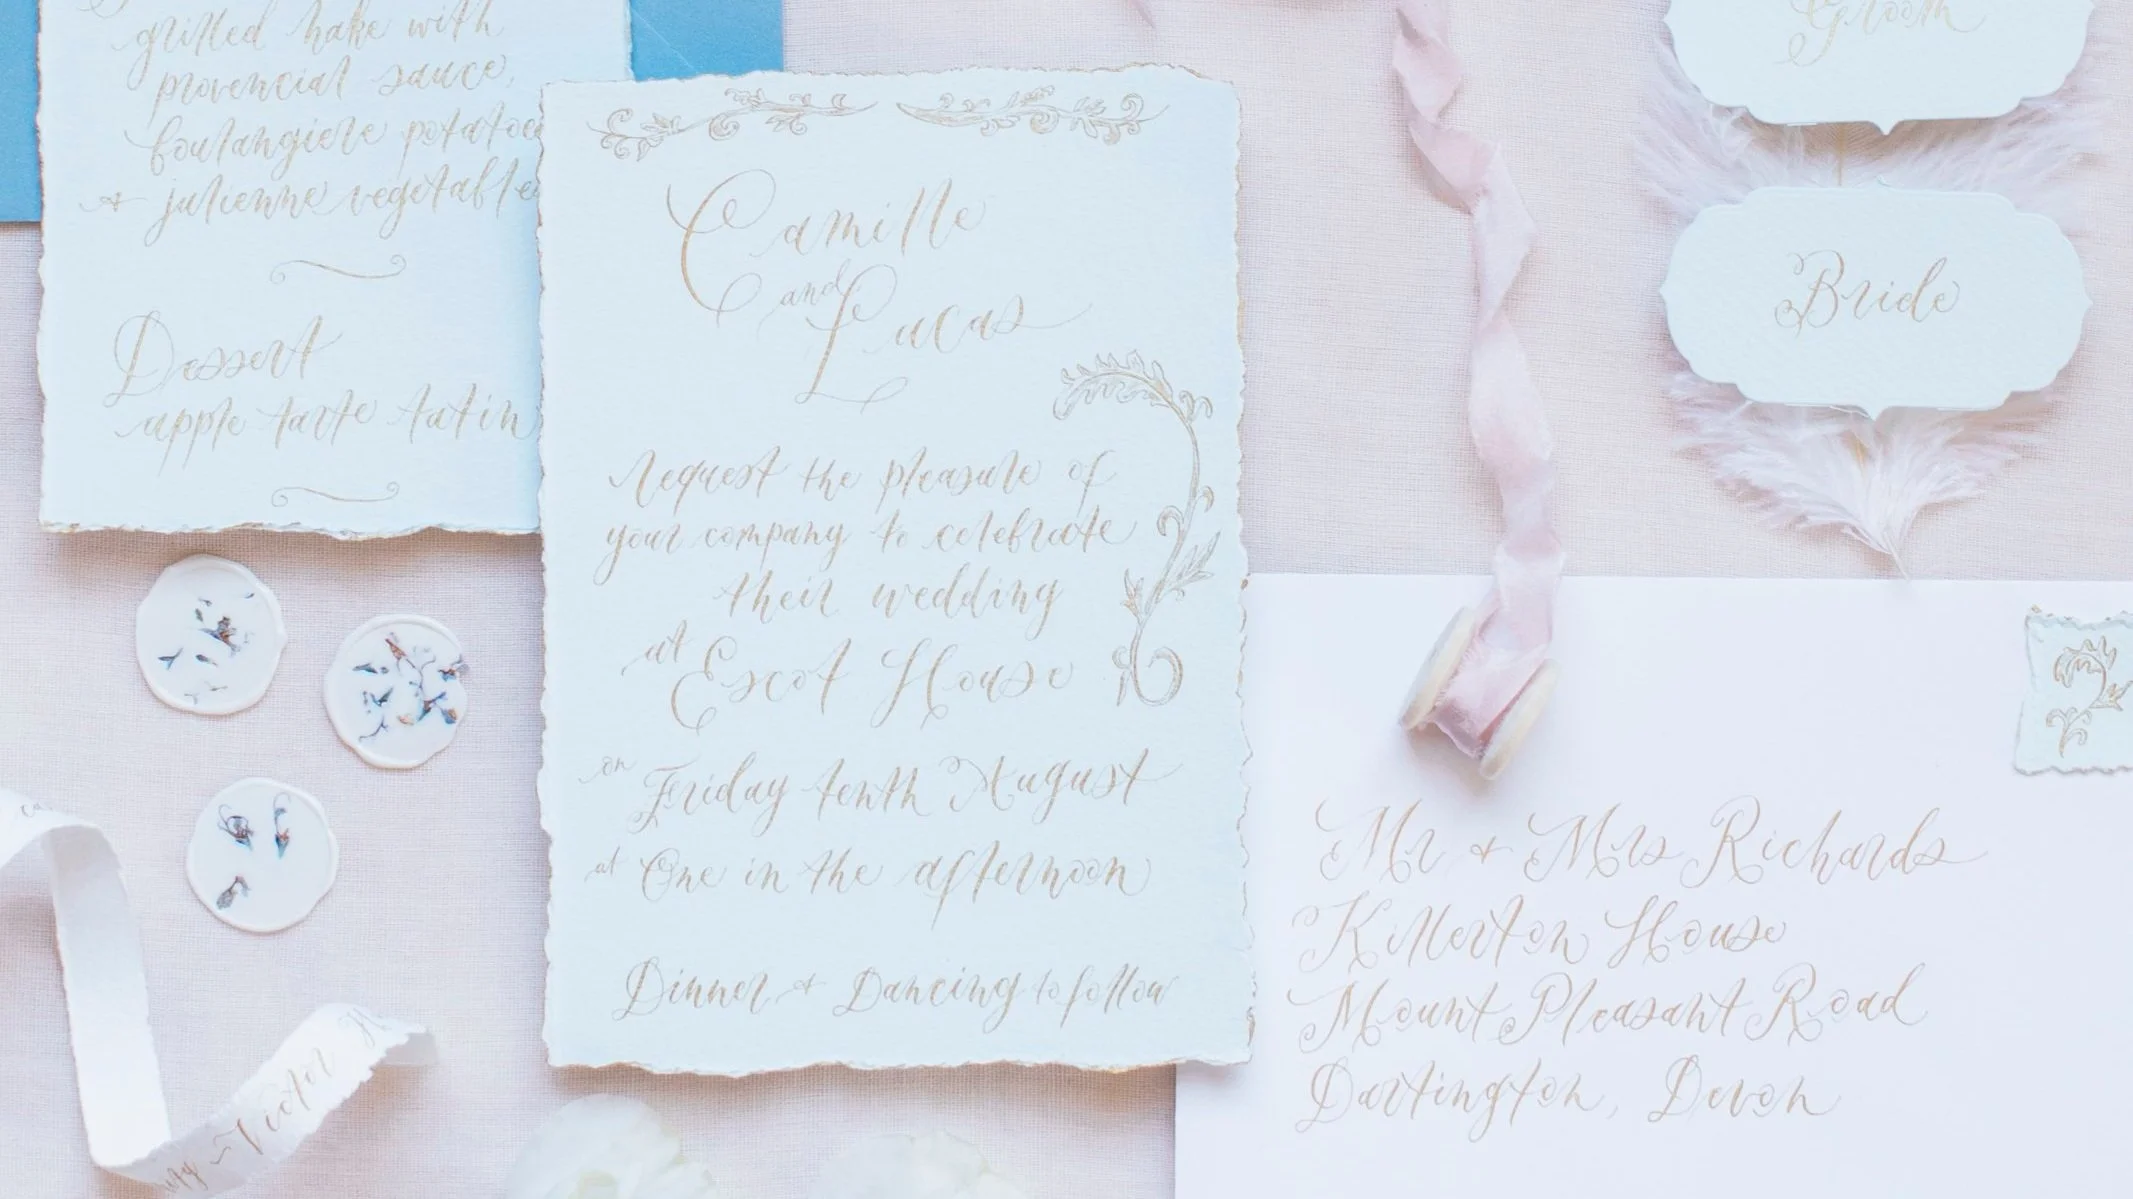 grilled hake with
provencial sauce,
boulangiere potatoe
+ julienne vegetable
Dessert
apple tarte tatin
Camille
and
Lucas
request the pleasure of
your company to celebrate
their wedding
at Escot House
on Friday tenth August
at One in the afternoon
Dinner + Dancing to follow
Groom
Bride
Mr + Mrs Richards
Killerton House
Mount Pleasant Road
Dartington, Devon
~ Victor H